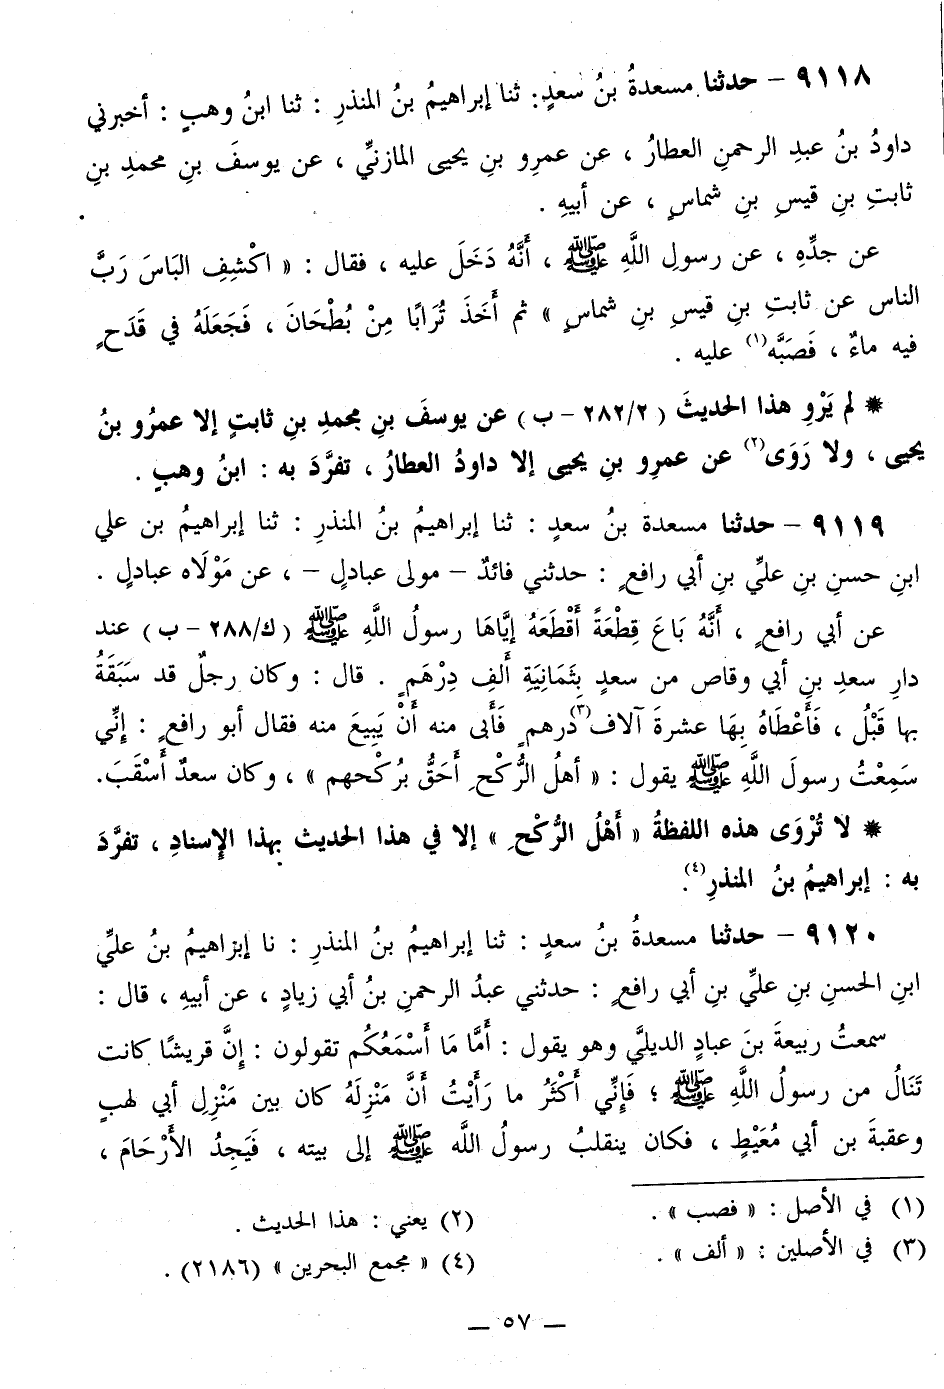 ٩١١٨ – حدثنا مسعدةُ بنُ سعدٍ: ثنا إبراهيمُ بنُ المنذرِ : ثنا ابنُ وهبٍ : أخبرني
داودُ بنُ عبدِ الرحمنِ العطارُ ، عن عمرِو بنِ يحيى المازنيِّ ، عن يوسفَ بنِ محمدِ بنِ
ثابتِ بنِ قيسِ بنِ شماسٍ ، عن أبيهِ .
عن جدِّهِ ، عن رسولِ اللَّهِ ﷺ ، أَنَّهُ دَخَلَ عليه ، فقال : « اكْشِفِ البَاسَ رَبَّ
الناس عن ثابتِ بنِ قيسِ بنِ شماسٍ » ثم أَخَذَ تُرَابًا مِنْ بُطْحَانَ ، فَجَعَلَهُ في قَدَحٍ
فيه ماءٌ ، فَصَبَّه(١) عليه .
* لم يَرْوِ هذا الحديثَ (٢٨٢/٢ – ب) عن يوسفَ بنِ محمدِ بنِ ثابتٍ إلا عمرُو بنُ
يحيى ، ولا رَوَى(٢) عن عمرِو بنِ يحيى إلا داودُ العطارُ ، تفرَّدَ به : ابنُ وهبٍ .
٩١١٩ – حدثنا مسعدة بنُ سعدٍ : ثنا إبراهيمُ بنُ المنذرِ : ثنا إبراهيمُ بن علي
ابنِ حسنِ بنِ عليِّ بنِ أبي رافعٍ : حدثني فائدٌ – مولى عبادلٍ – ، عن مَوْلَاه عبادلٍ .
عن أبي رافعٍ ، أَنَّهُ بَاعَ قِطْعَةً أَقْطَعَهُ إيَّاهَا رسولُ اللَّهِ ﷺ (ك/٢٨٨ – ب) عند
دارِ سعدِ بنِ أبي وقاص من سعدٍ بِثَمَانِيَةِ أَلفِ دِرْهَمٍ . قال : وكان رجلٌ قد سَبَقَهُ
بها قَبْلُ ، فَأَعْطَاهُ بِهَا عشرةَ آلاف(٣) درهمٍ فَأَبَى منه أَنْ يَبِيعَ منه فقال أبو رافعٍ : إِنِّي
سَمِعْتُ رسولَ اللَّهِ ﷺ يقول : « أهلُ الرُّكْحِ أَحَقُّ بِرُكْحهم » ، وكان سعدٌ أَسْقَبَ.
* لا تُرْوَى هذه اللفظةُ « أَهْلُ الرُّكْحِ » إلا في هذا الحديث بهذا الإِسنادِ ، تفرَّدَ
به : إبراهيمُ بنُ المنذرِ(٤).
٩١٢٠ – حدثنا مسعدةُ بنُ سعدٍ : ثنا إبراهيمُ بنُ المنذرِ : نا إبراهيمُ بنُ عليِّ
ابنِ الحسنِ بنِ عليِّ بنِ أبي رافعٍ : حدثني عبدُ الرحمنِ بنُ أبي زيادٍ ، عن أبيهِ ، قال :
سمعتُ ربيعةَ بنَ عبادٍ الديليَّ وهو يقول : أَمَّا مَا أَسْمَعُكُم تقولون : إِنَّ قريشًا كانت
تَنَالُ من رسولُ اللَّهِ ﷺ ؛ فَإِنِّي أَكْثَرُ ما رَأَيْتُ أَنَّ مَنْزِلَهُ كان بين مَنْزِلِ أبي لهبٍ
وعقبةَ بن أبي مُعَيْطٍ ، فكان ينقلبُ رسولُ اللَّه ﷺ إلى بيته ، فَيَجِدُ الأَرْحَامَ ،
(١) في الأصل : « فصب » .
(٢) يعني : هذا الحديث .
(٣) في الأصلين : « ألف » .
(٤) « مجمع البحرين » (٢١٨٦) .
— ٥٧ —